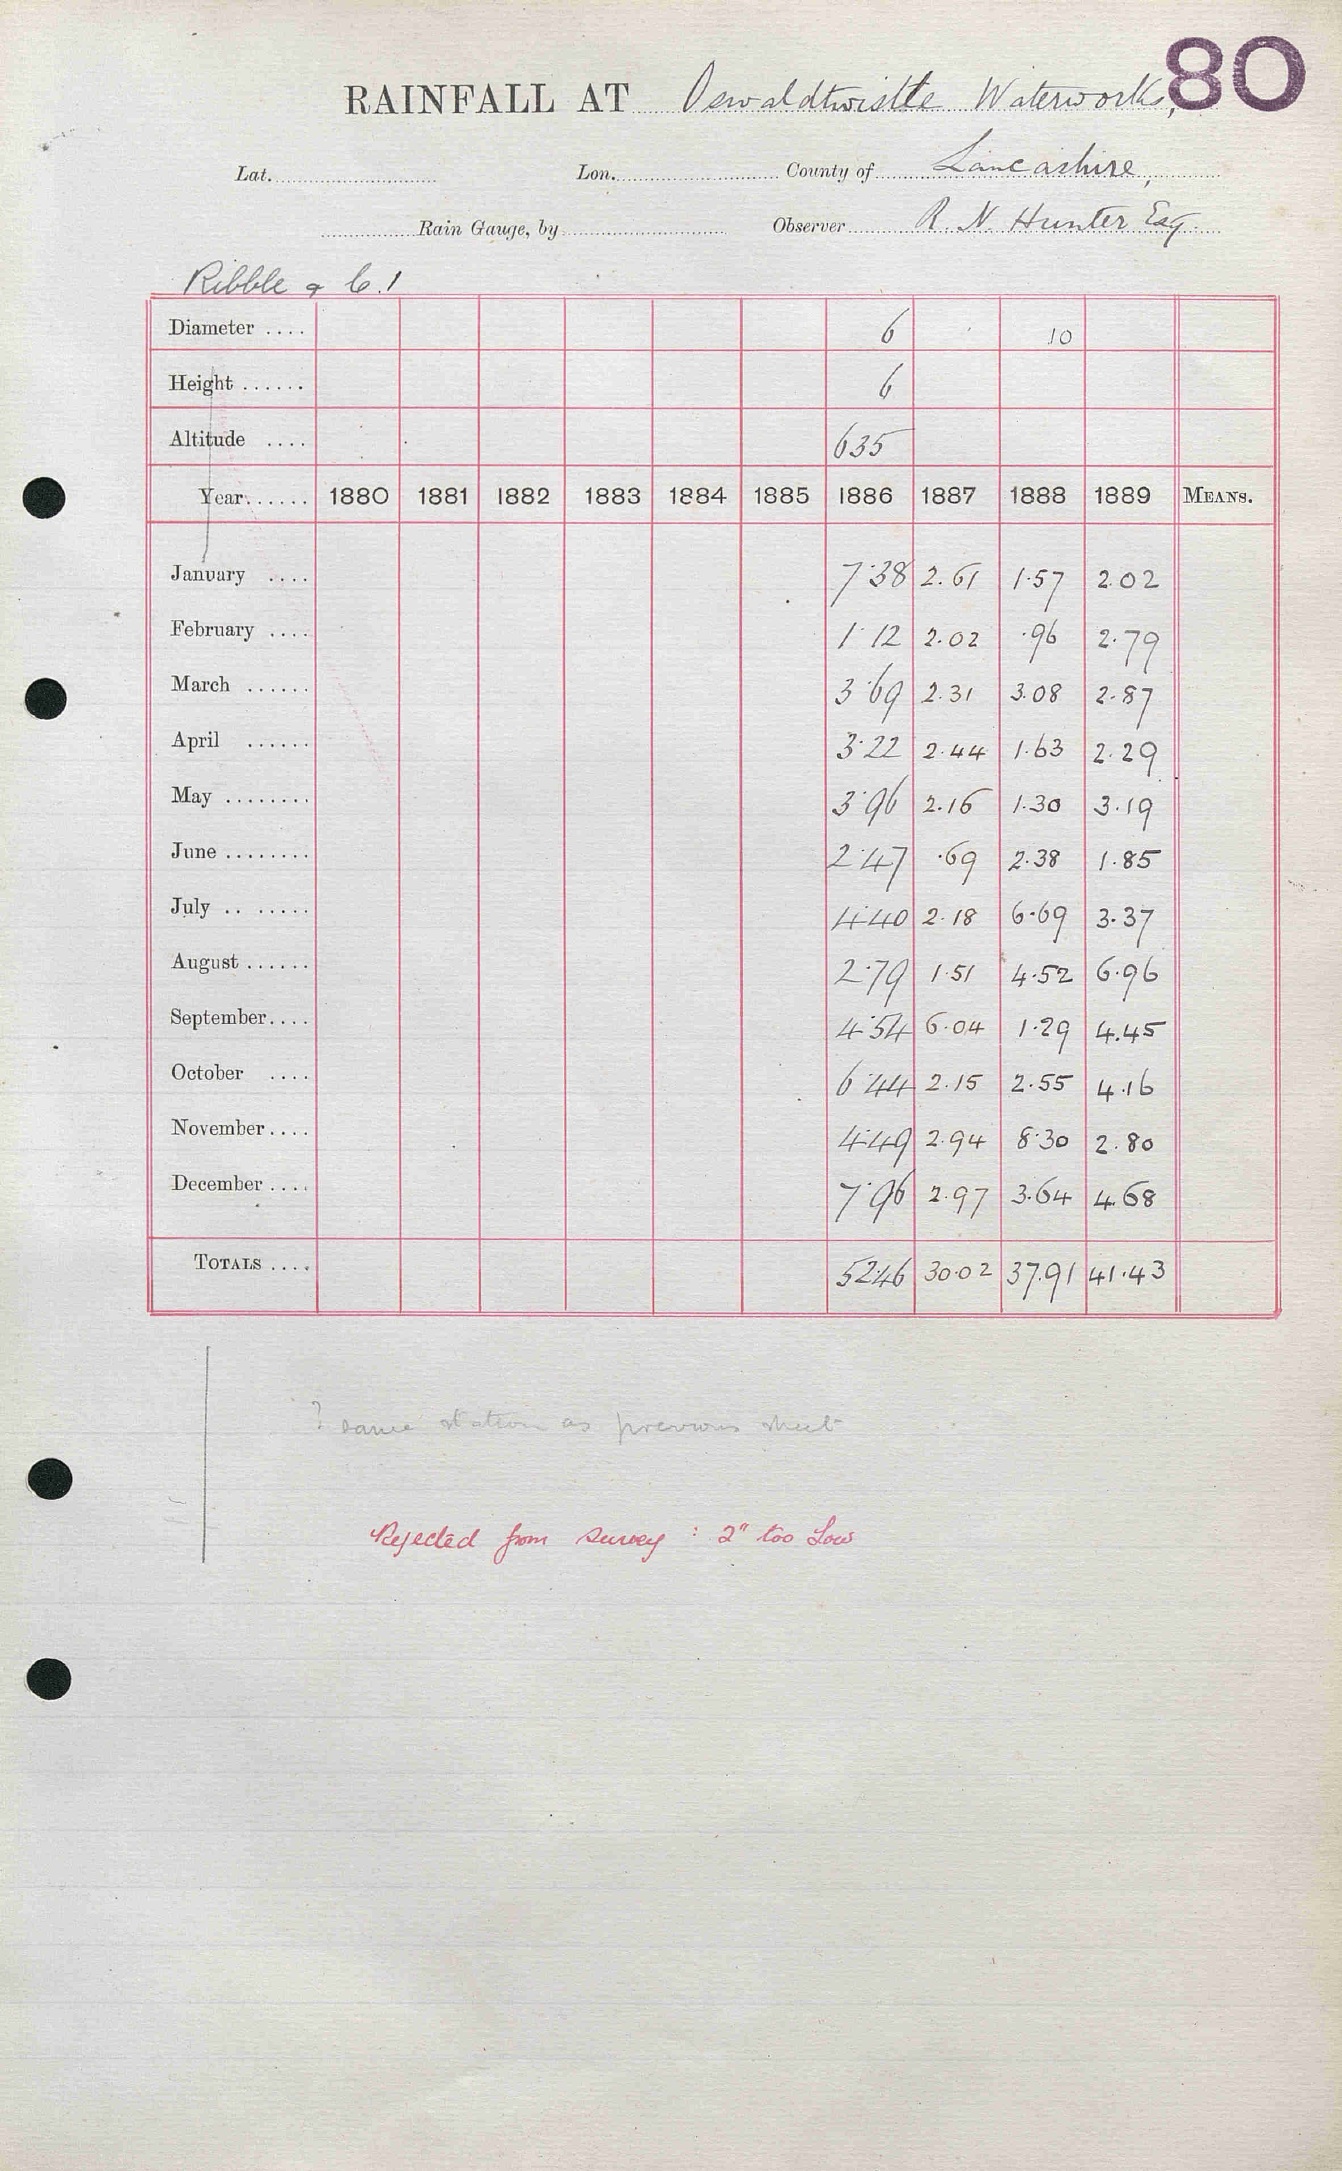 80
RAINFALL AT Oswaldtwistle Waterworks,
Lat. Lon. County of Lancashire,
Rain Gauge, by Observer R. N. Hunter Esq.
Ribble & C.1
Diameter .... 6 10
Height ...... 6
Altitude .... 635
Year...... 1880 1881 1882 1883 1884 1885 1886 1887 1888 1889 MEANS.
January .... 7.38 2.61 1.57 2.02
February .... 1.12 2.02 .96 2.79
March ...... 3.69 2.31 3.08 2.87
April ...... 3.22 2.44 1.63 2.29
May ........ 3.96 2.16 1.30 3.19
June ........ 2.47 .69 2.38 1.85
July .. ...... 4.40 2.18 6.69 3.37
August ...... 2.79 1.51 4.52 6.96
September.... 4.54 6.04 1.29 4.45
October .... 6.44 2.15 2.55 4.16
November.... 4.49 2.94 8.30 2.80
December .... 7.96 2.97 3.64 4.68
TOTALS .... 52.46 30.02 37.91 41.43
? same station as previous sheet
Rejected from survey : 2" too Low